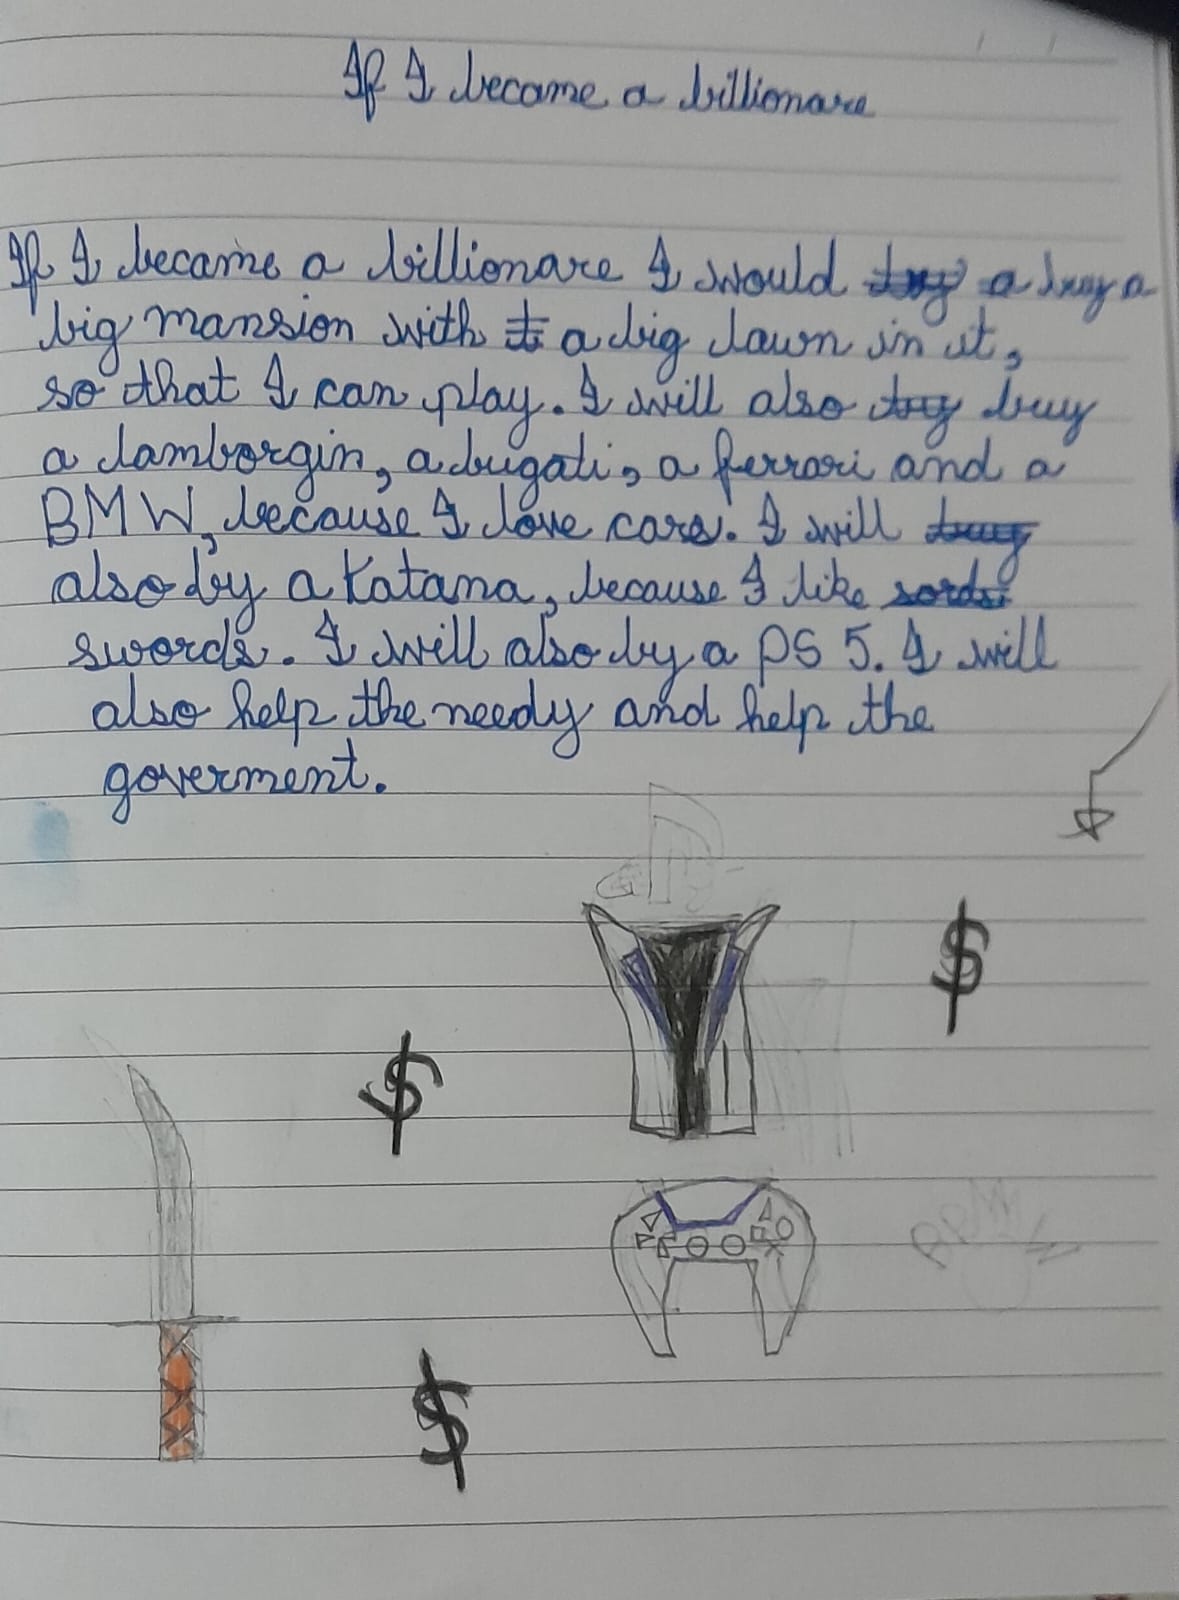 If I became a billionare
If I became a billionare I would buy a
big mansion with a big lawn in it,
so that I can play. I will also buy
a lamborgin, a bugati, a ferrari and a
BMW, because I love cars. I will
also by a katana, because I like
swords. I will also by a PS 5. I will
also help the needy and help the
goverment.
$
$
$